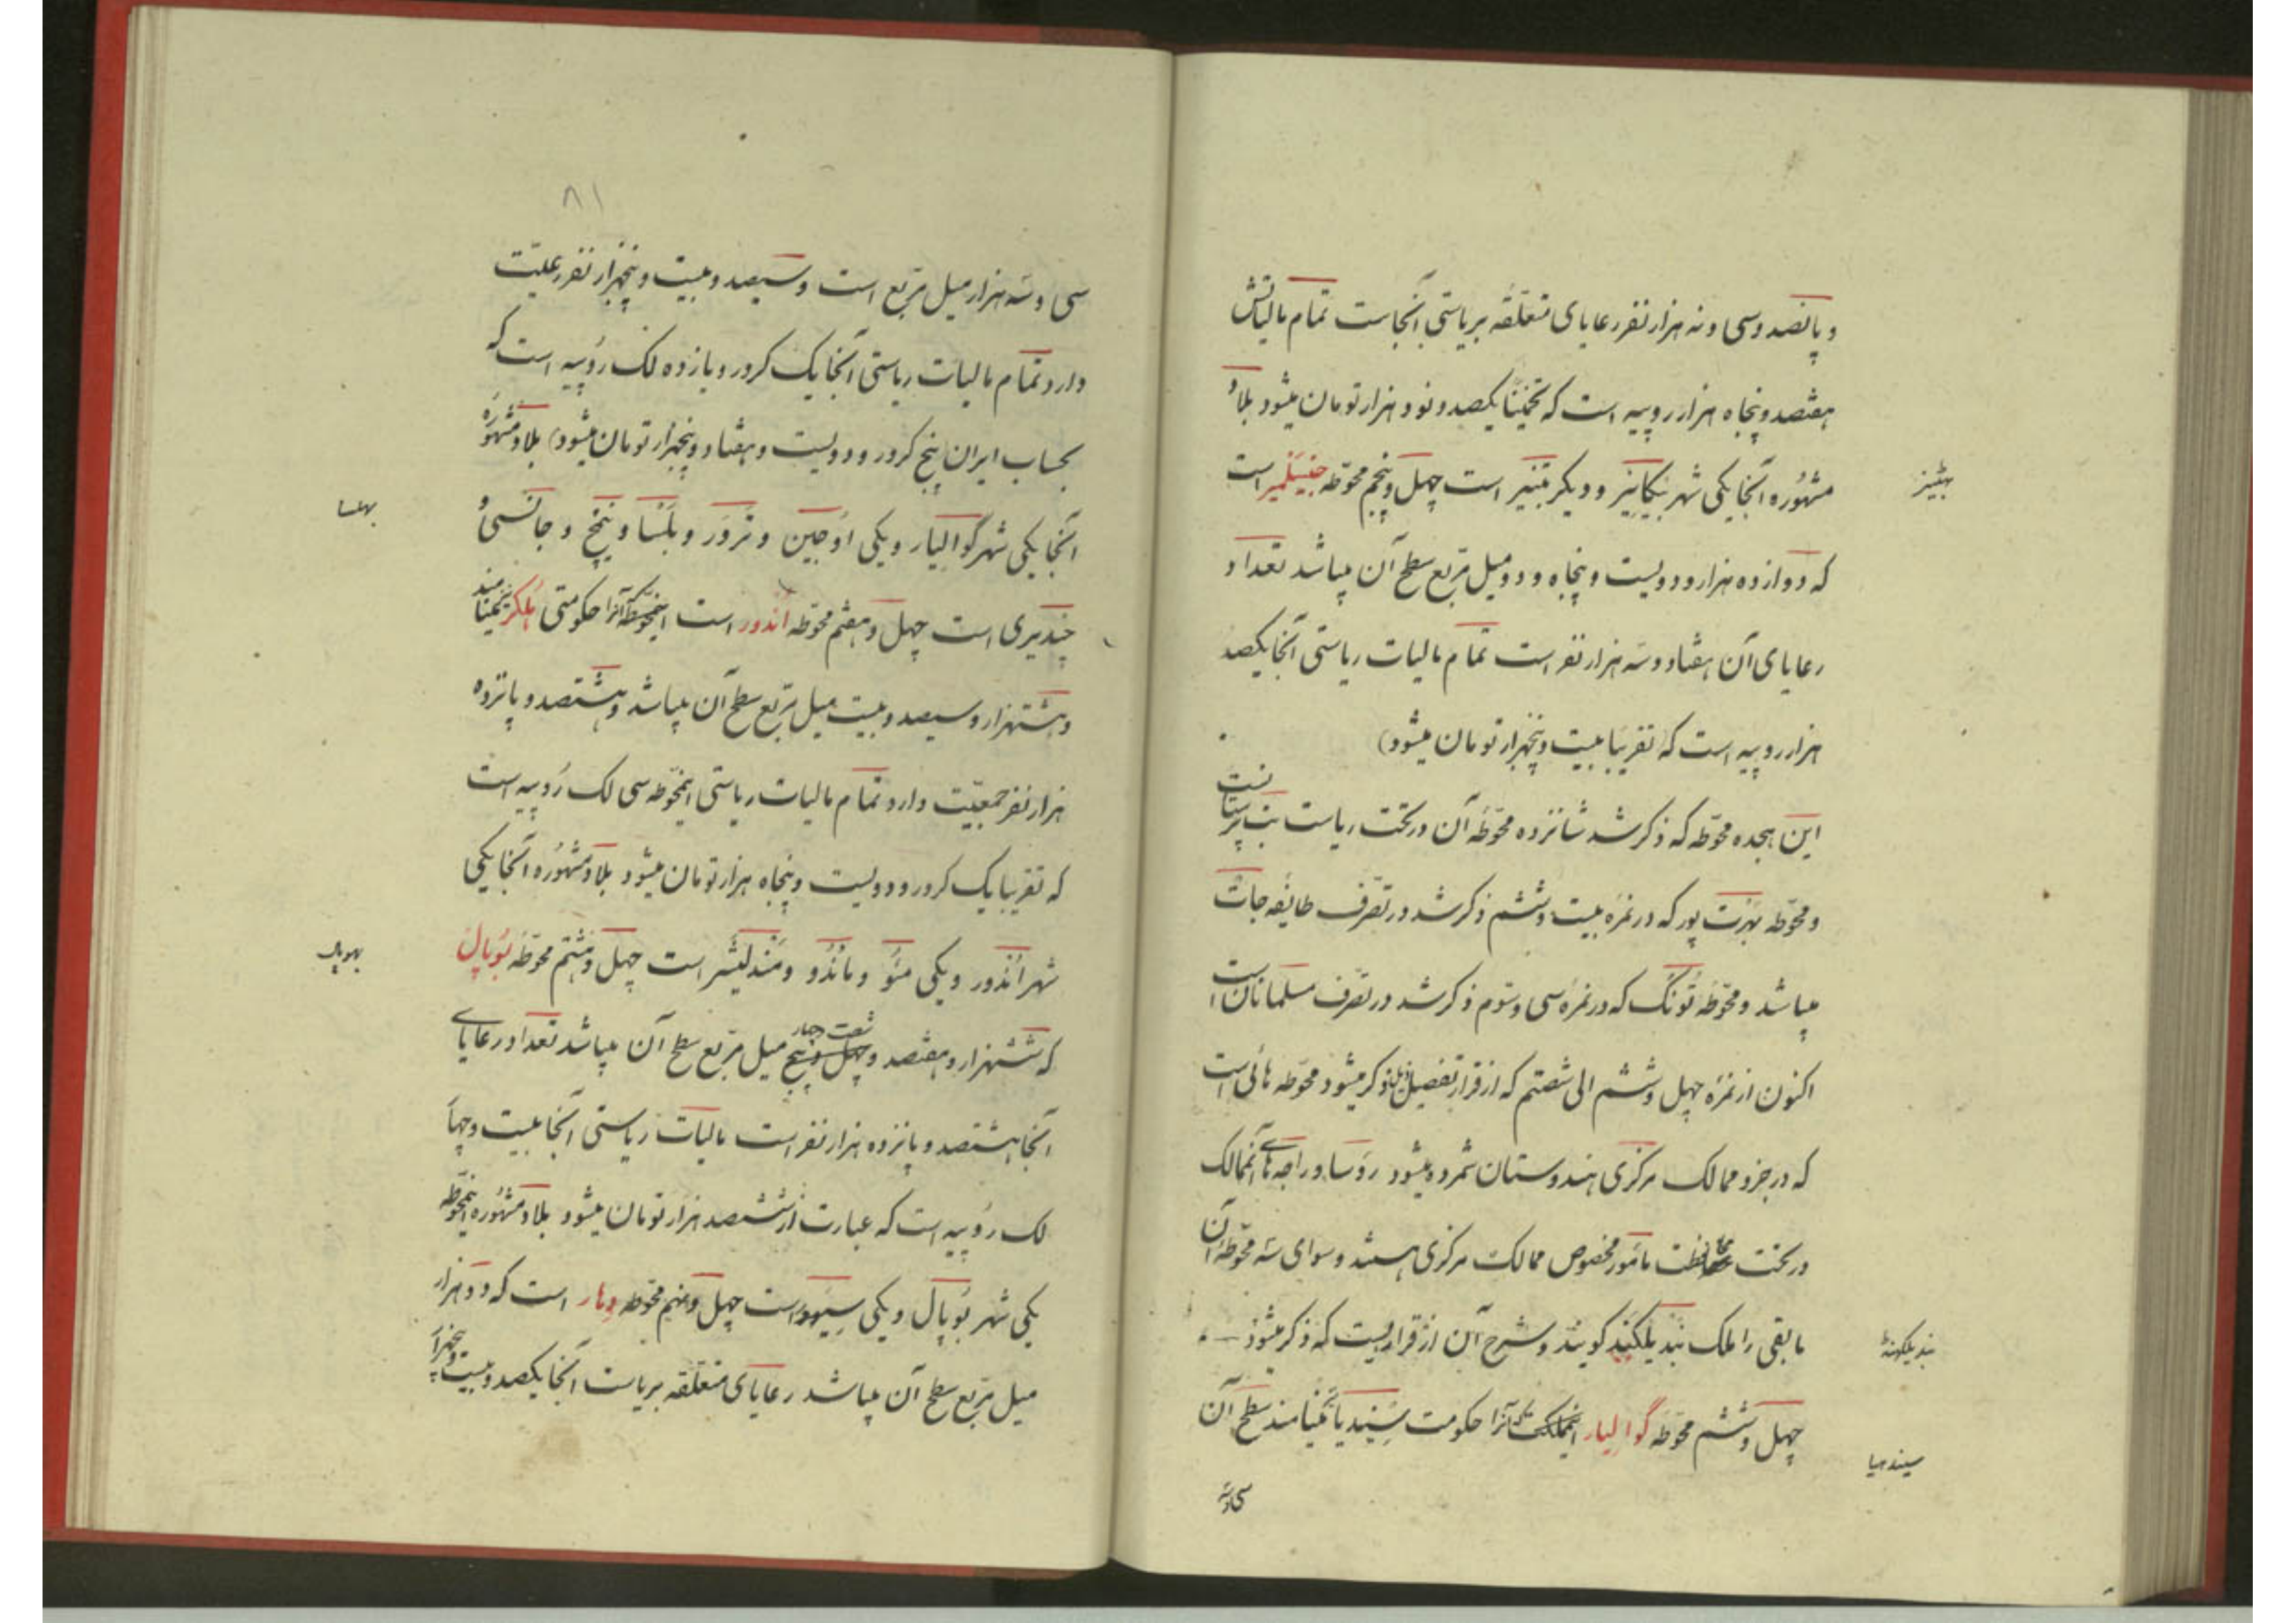 و پانصد و سی و نه هزار نفر رعایای متعلّقه بریاستی آنجاست تمام مالیاتش
هفتصد و پنجاه هزار روپیه است که تخمیناً یکصد و نود هزار تومان میشود بلاد
مشهُوره آنجا یکی شهر بیکانیر و دیگر بتنیر است چهل و پنجم محوّطه جیسَلمیر است
بهٹنیر
که دوازده هزار و دویست و پنجاه و دو میل مربّع سطح آن میباشد تعداد
رعایای آن هفتاد و سَه هزار نفر است تمام مالیات ریاستی آنجا یکصد
هزار روپیه است که تقریباً بیست و پنجهزار تومان میشود)
این هجده محوّطه که ذکر شد شانزده محوّطهٔ آن در تحت ریاست بت پرستانست
و محوّطه بهرَت پور که در نمرهٔ بیست و ششم ذکر شد در تصّرف طایفه جات
میباشد و محوّطهٔ تُونک که در نمرهٔ سی و سّوم ذکر شد در تصّرف مسلمانان است
اکنون از نمرهٔ چهل و ششم الی شصتم که از قرار تفصیل ذیل ذکر میشود محوّطه هائی است
که در جزو ممالک مرکزی هندوستان شمرده میشود رؤسا و راجه هاے آنممالک
در تحت محافظت مأمور مخصوص ممالک مرکزی هستند و سوای سَه محوّطهٔ آن
مابقی را ملک بُندیلکَند گویند و شرح آن از قراریست که ذکر میشود
بندیلکهنڈ
چهل و ششم محوّطه گوالیار اینملکت که آنرا حکومت سِیندیا مینامند سطح آن
سیندهیا
سی و سَه
۸۱
سی و سَه هزار میل مربّع است و سیصد و بیست و پنجهزار نفر رعیّت
دارد تمام مالیات ریاستی آنجا یک کرور و یازده لک روُپیه است که
بحساب ایران پنج کرور و دویست و هفتاد و پنجهزار تومان میشود) بلاد مشهُورهٔ
آنجا یکی شهر گوالیار و یکی اوجین و نَروَر و بلسَا و نیمَخ و جانسی و
بهلسا
چندیری است چهل و هفتم محوّطه اَندور است اینمحوّطه که آنرا حکومتی هُلکر مینامند
و هشتهزار و سیصد و بیست میل مربّع سطح آن میباشد و هشتصد و پانزده
هزار نفر جمعیّت دارد تمام مالیات ریاستی اینمحوّطه سی لک روُپیه است
که تقریباً یک کرور و دویست و پنجاه هزار تومان میشود بلاد مشهُوره آنجا یکی
شهر اَندور و یکی مئو و ماندُو و مَندلیشَر است چهل و هشتم محوّطهٔ بُوپال
بهوپال
که ششهزار و هفتصد و شصت و چهار میل مربّع سطح آن میباشد تعداد رعایاے
آنجا هشتصد و پانزده هزار نفر است مالیات ریاستی آنجا بیست و چهار
لک روُپیه است که عبارت از ششصد هزار تومان میشود بلاد مشهُوره اینمحوّطه
یکی شهر بُوپال و یکی سِیهور است چهل و نهم محوّطه دِهار است که دو هزار
میل مربّع سطح آن میباشد رعایای متعلّقه بریاست آنجا یکصد و بیست و پنجهزار